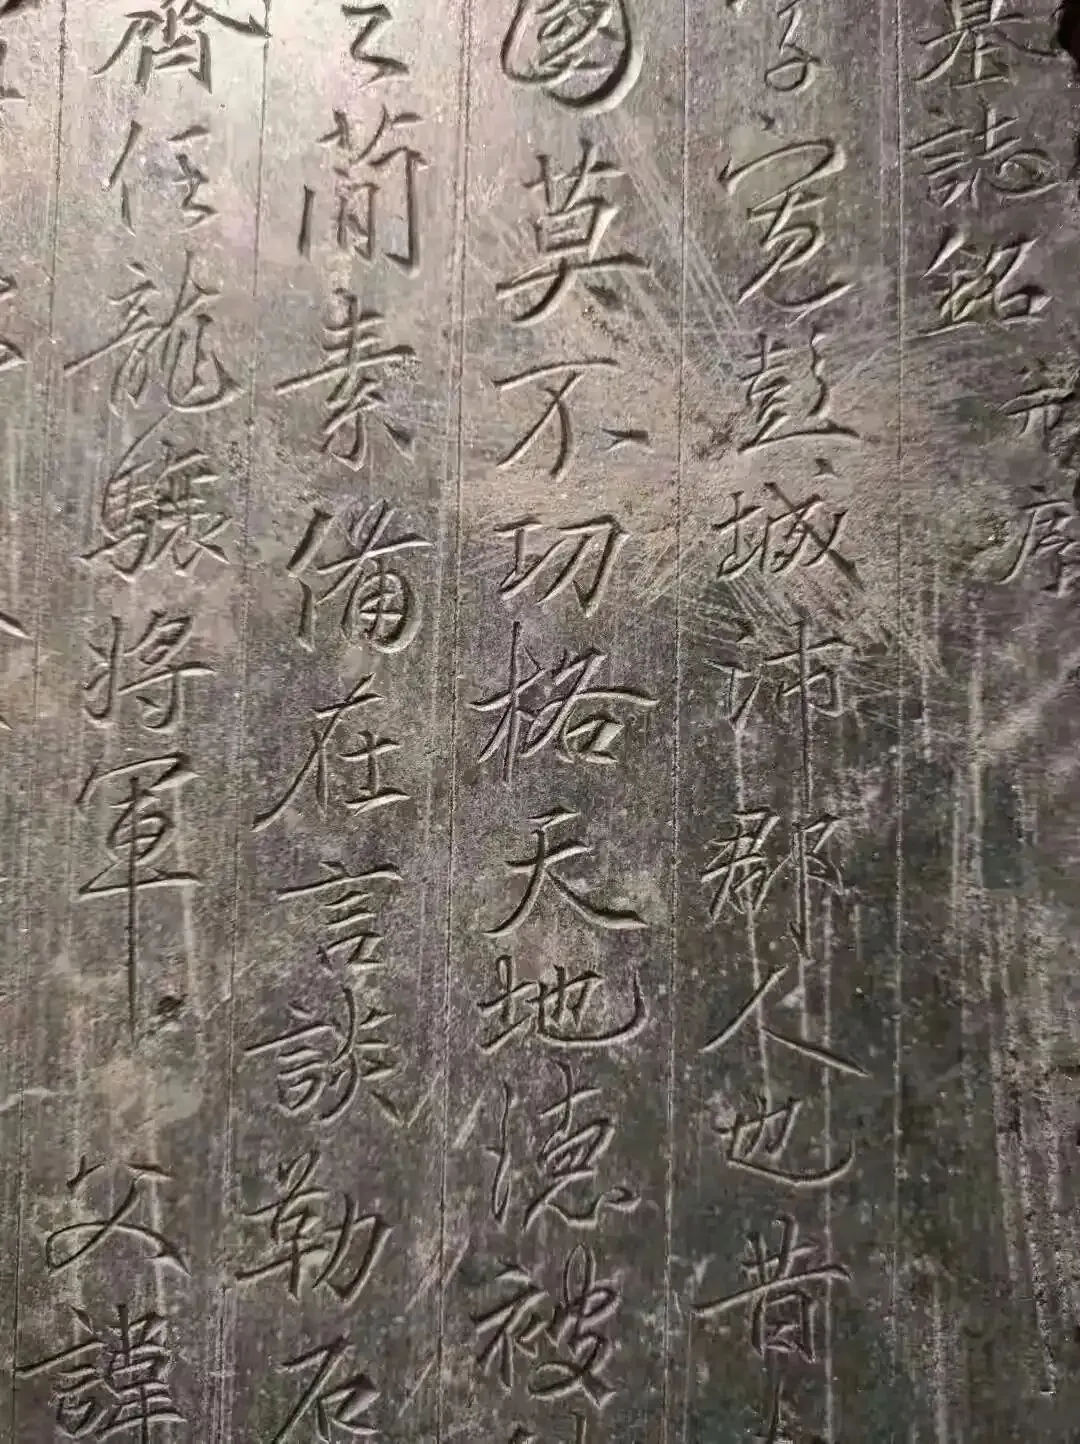 墓誌銘并序
字寬彭城沛郡人也昔
國莫不功格天地德被
之蕳素備在言談勒石
齊任龍驤將軍父諱